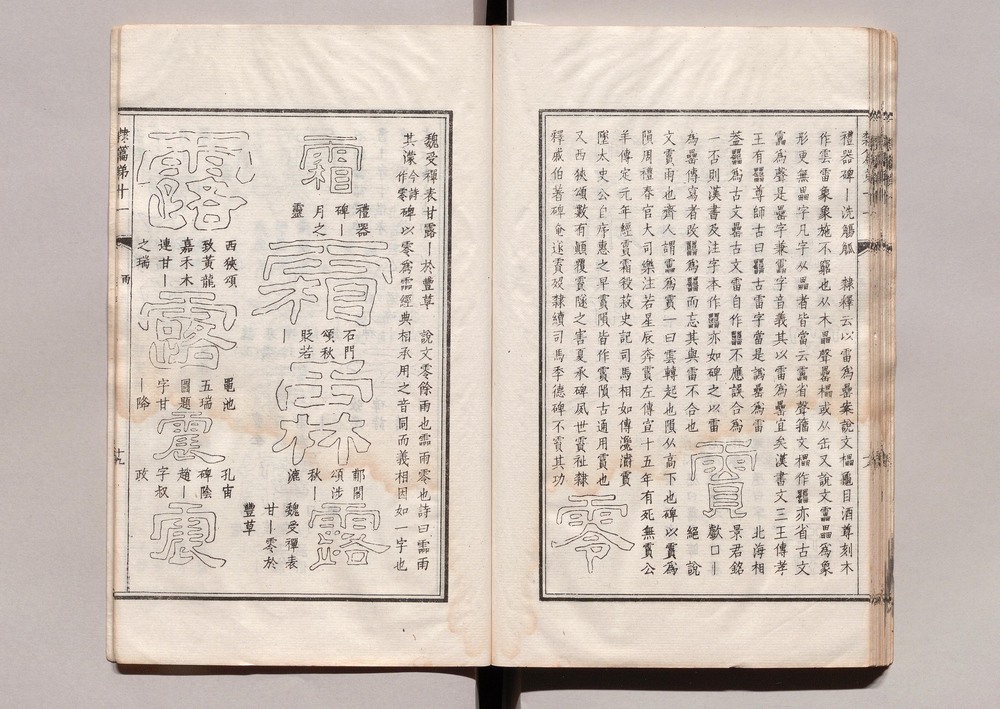 禮器碑｜洗觴觚　隸釋云以雷為罍案說文櫑龜目酒尊刻木
作雲雷象象施不窮也从木畾聲罍櫑或从缶又說文靁畾為象
形更無畾字凡字从畾者皆當云靁省聲籀文櫑作亦省古文
靁為聲是罍字兼靁字音義其以雷為罍宜矣漢書文三王傳孝
王有罍尊師古曰古雷字當是譌罍為雷
葢為古文罍古文雷自作不應誤合為
一否則漢書及注字本作亦如碑之以雷
為罍傳寫者改為而忘其與雷不合也
霣
北海相
景君銘
歔口｜
絕　說
文霣雨也齊人謂靁為霣一曰雲轉起也隕从高下也碑以霣為
隕周禮春官大司樂注若星辰奔霣左傳宣十五年有死無霣公
羊傳定元年經霣霜殺菽史記司馬相如傳瀺灂霣
墜太史公自序惠之早霣隕皆作霣隕古通用霣也
又西狹頌數有顛覆霣隧之害夏承碑夙世霣祉隸
釋戚伯著碑奄遂霣歿隸續司馬季德碑不霣其功
零
魏受禪表甘露｜於豐草　說文零餘雨也霝雨零也詩曰霝雨
其濛今詩作零碑以零為霝經典相承用之音同而義相因如一字也
霜
禮器
碑｜
月之
靈
霜
石門
頌秋
貶若
｜
霖
郙閣
頌涉
秋｜
漉
露
魏受禪表
甘｜零於
豐草
露
西狹頌
致黃龍
嘉禾木
連甘｜
之瑞
露
黽池
五瑞
圖題
字甘
｜降
震
孔宙
碑陰
趙｜
字叔
政
震
隸篇第十一
雨
十九